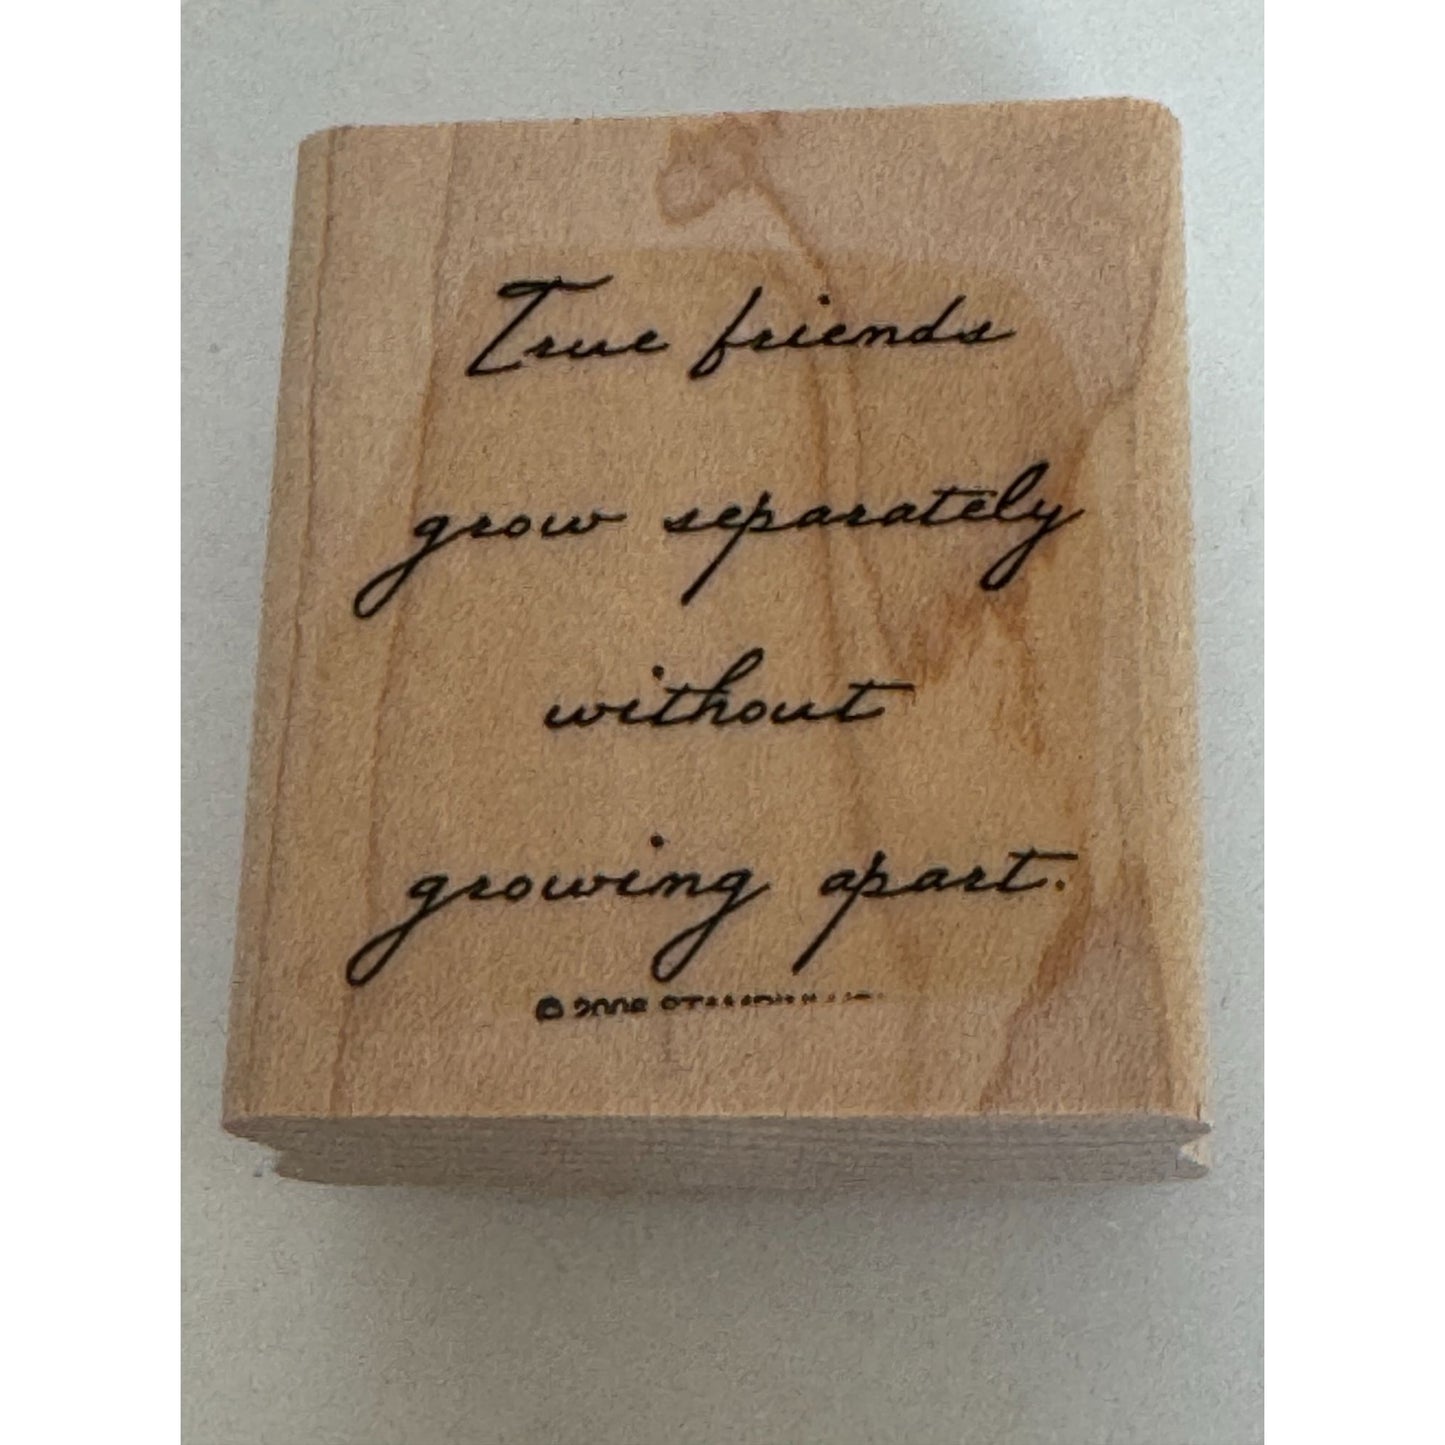 True friends
grow separately
without
growing apart.